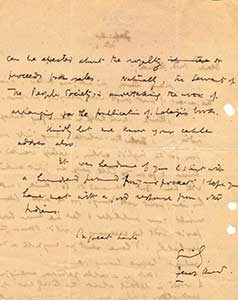 can be expected about the royalty
proceeds from sales. Naturally, the Servants of
The People Society, is undertaking the work of
arranging for the publication of Lalaji's works.
Kindly let me know your cable
address also.
It was handsome of you to start with
a hundred pounds from your pocket. I hope you
have met with a good response from other
Indians.
In great haste